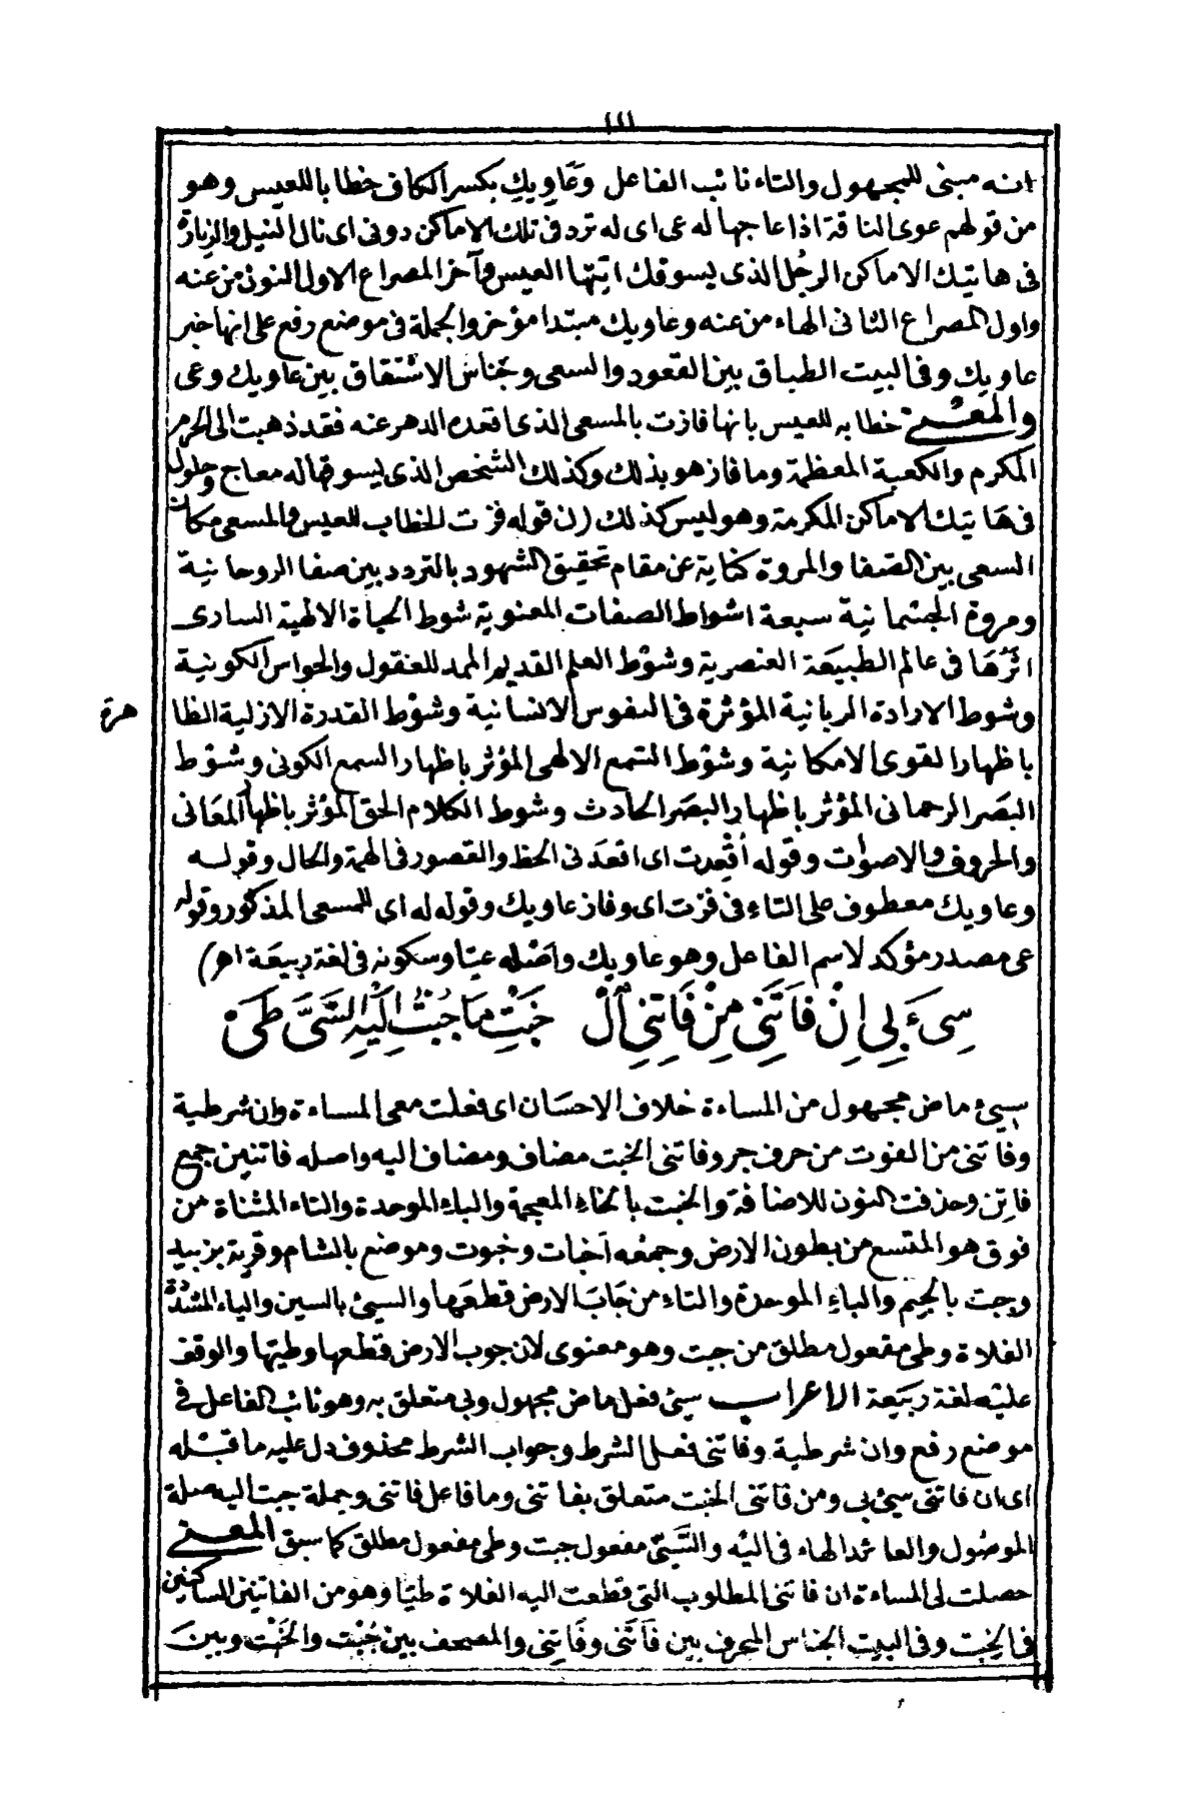 ١١١
انه مبنى للمجهول والتاء نائب الفاعل وعَاوِيكِ بكسر الكاف خطابا للعيس وهو
من قولهم عوى الناقة اذا عاجها له عى اى له تردد فى تلك الاماكن دونى اى نال النيل والزيارة
فى هاتيك الاماكن الرجُل الذى يسوقك ايتها العيس وآخر المصراع الاول النون من عنه
واول المصراع الثانى الهاء من عنه وعاويك مبتدا مؤخر والجملة فى موضع رفع على انها خبر
عاويك وفى البيت الطباق بين القعود والسعى وجناس الاشتقاق بين عاويك وعى
والمعنى خطابه للعيس بانها فازت بالمسعى الذى اقعده الدهر عنه فقد ذهبت الى الحرم
المكرم والكعبة المعظمة وما فاز هو بذلك وكذلك الشخص الذى يسوقها له معاج وحلول
فى هَاتيك الاماكن المكرمة وهو ليس كذلك (ن قوله فزت الخطاب للعيس والمسعى مكان
السعى بين الصفا والمروة كناية عن مقام تحقيق الشهود بالتردد بين صفا الروحانية
ومروة الجثمانية سبعة اشواط الصفات المعنوية شوط الحياة الالهية السارى
اثرهَا فى عالم الطبيعَة العنصرية وشوْط العلم القديم الممد للعقول والحواس الكونية
وشوط الارادة الربانية المؤثرة فى النفوس الانسانية وشوْط القدرة الازلية الظا
هرة
باظهار القوى الامكانية وشوْط السّمع الالهى المؤثر باظهار السمع الكونى وشوْط
البصَر الرحمانى المؤثر باظهار البصَر الحادث وشوط الكلام الحق المؤثر باظهار المعَانى
والحروف والاصوٰات وقوله أقْعِدت اى اقعدَنى الحظ والقصور فى الهمة والحال وقوله
وعاويك معطوف على التاءِ فى فزت اى وفاز عاويك وقوله له اى للمسعى المذكور وقوله
عى مصدر مؤكد لاسم الفاعل وهو عاويك واصْله عيّا وسكونه فى لغة ربيعَة اهـ)
سِىءَ بِى اِنْ فَاتَنِى مِنْ فَاتِنِى الْ خَبْتِ مَا جُبْتُ اِلَيْهِ السَّىَّ طَىْ
سيئ ماض مجهول من المساءة خلاف الاحسَان اى فعلت معى المساءة وان شرطية
وفاتنى من الفوت من حرف جر وفاتنى الخبت مضاف ومضاف اليه واصله فاتنين جمع
فاتِن وحذفت النون للاضافة والخبت بالخاءِ المعجمة والباءِ الموحدة والتاء المثناة من
فوق هو المتسع من بطون الارض وجمعُه اخبات وخبوت وموضع بالشام وقرية بزبيد
وجبت بالجيم والباءِ الموحدة والتاءِ من جَابَ الارض قطعَها والسيئ بالسين والياء المشدّدة
الفلاة وطى مفعول مطلق من جبت وهو معنوى لان جوب الارض قطعها وطيّها والوقف
عليْه لغة ربيَعة الاعراب سيئ فعل ماض مجهول وبى متعلق به وهو نائب الفاعل فى
موضع رفع وان شرطية وفاتنى فعل الشرط وجواب الشرط محذوف دل عليه ما قبْله
اى ان فاتنى سيئ بى ومن فاتنى الخبت متعلق بفاتنى وما فاعل فاتنى وجملة جبت اليه صلة
الموصُول والعائد الهاء فى اليْه والسَّىّ مفعول جبت وطى مفعول مطلق كما سبق المعنى
حصلت لى المساءة ان فاتنى المطلوب التى قطعت اليه الفلاة طيّا وهو من الفاتنين الساكنين
فى الخبت وفى البيت الجناس المحرف بين فَاتَنى وفَاتِنى والمصحف بين جُبْت والخَبْت وبينَ